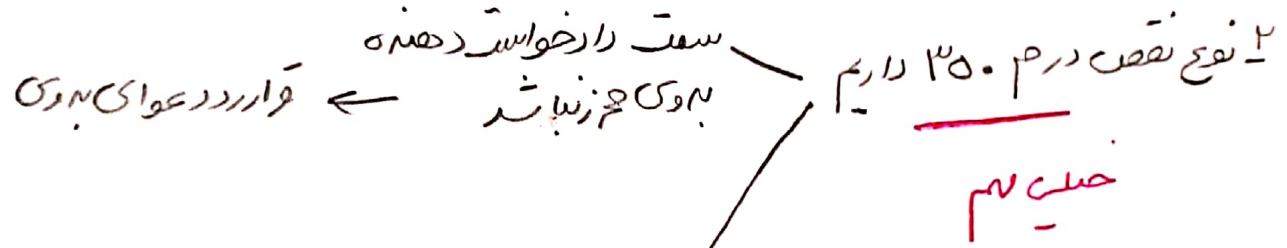 ۲ نوع نقص در م ۳۵۰ داریم
خیلی مهم
سمت دادخواست دهنده
بدوی محرز نباشد ← قرار رد دعوای بدوی